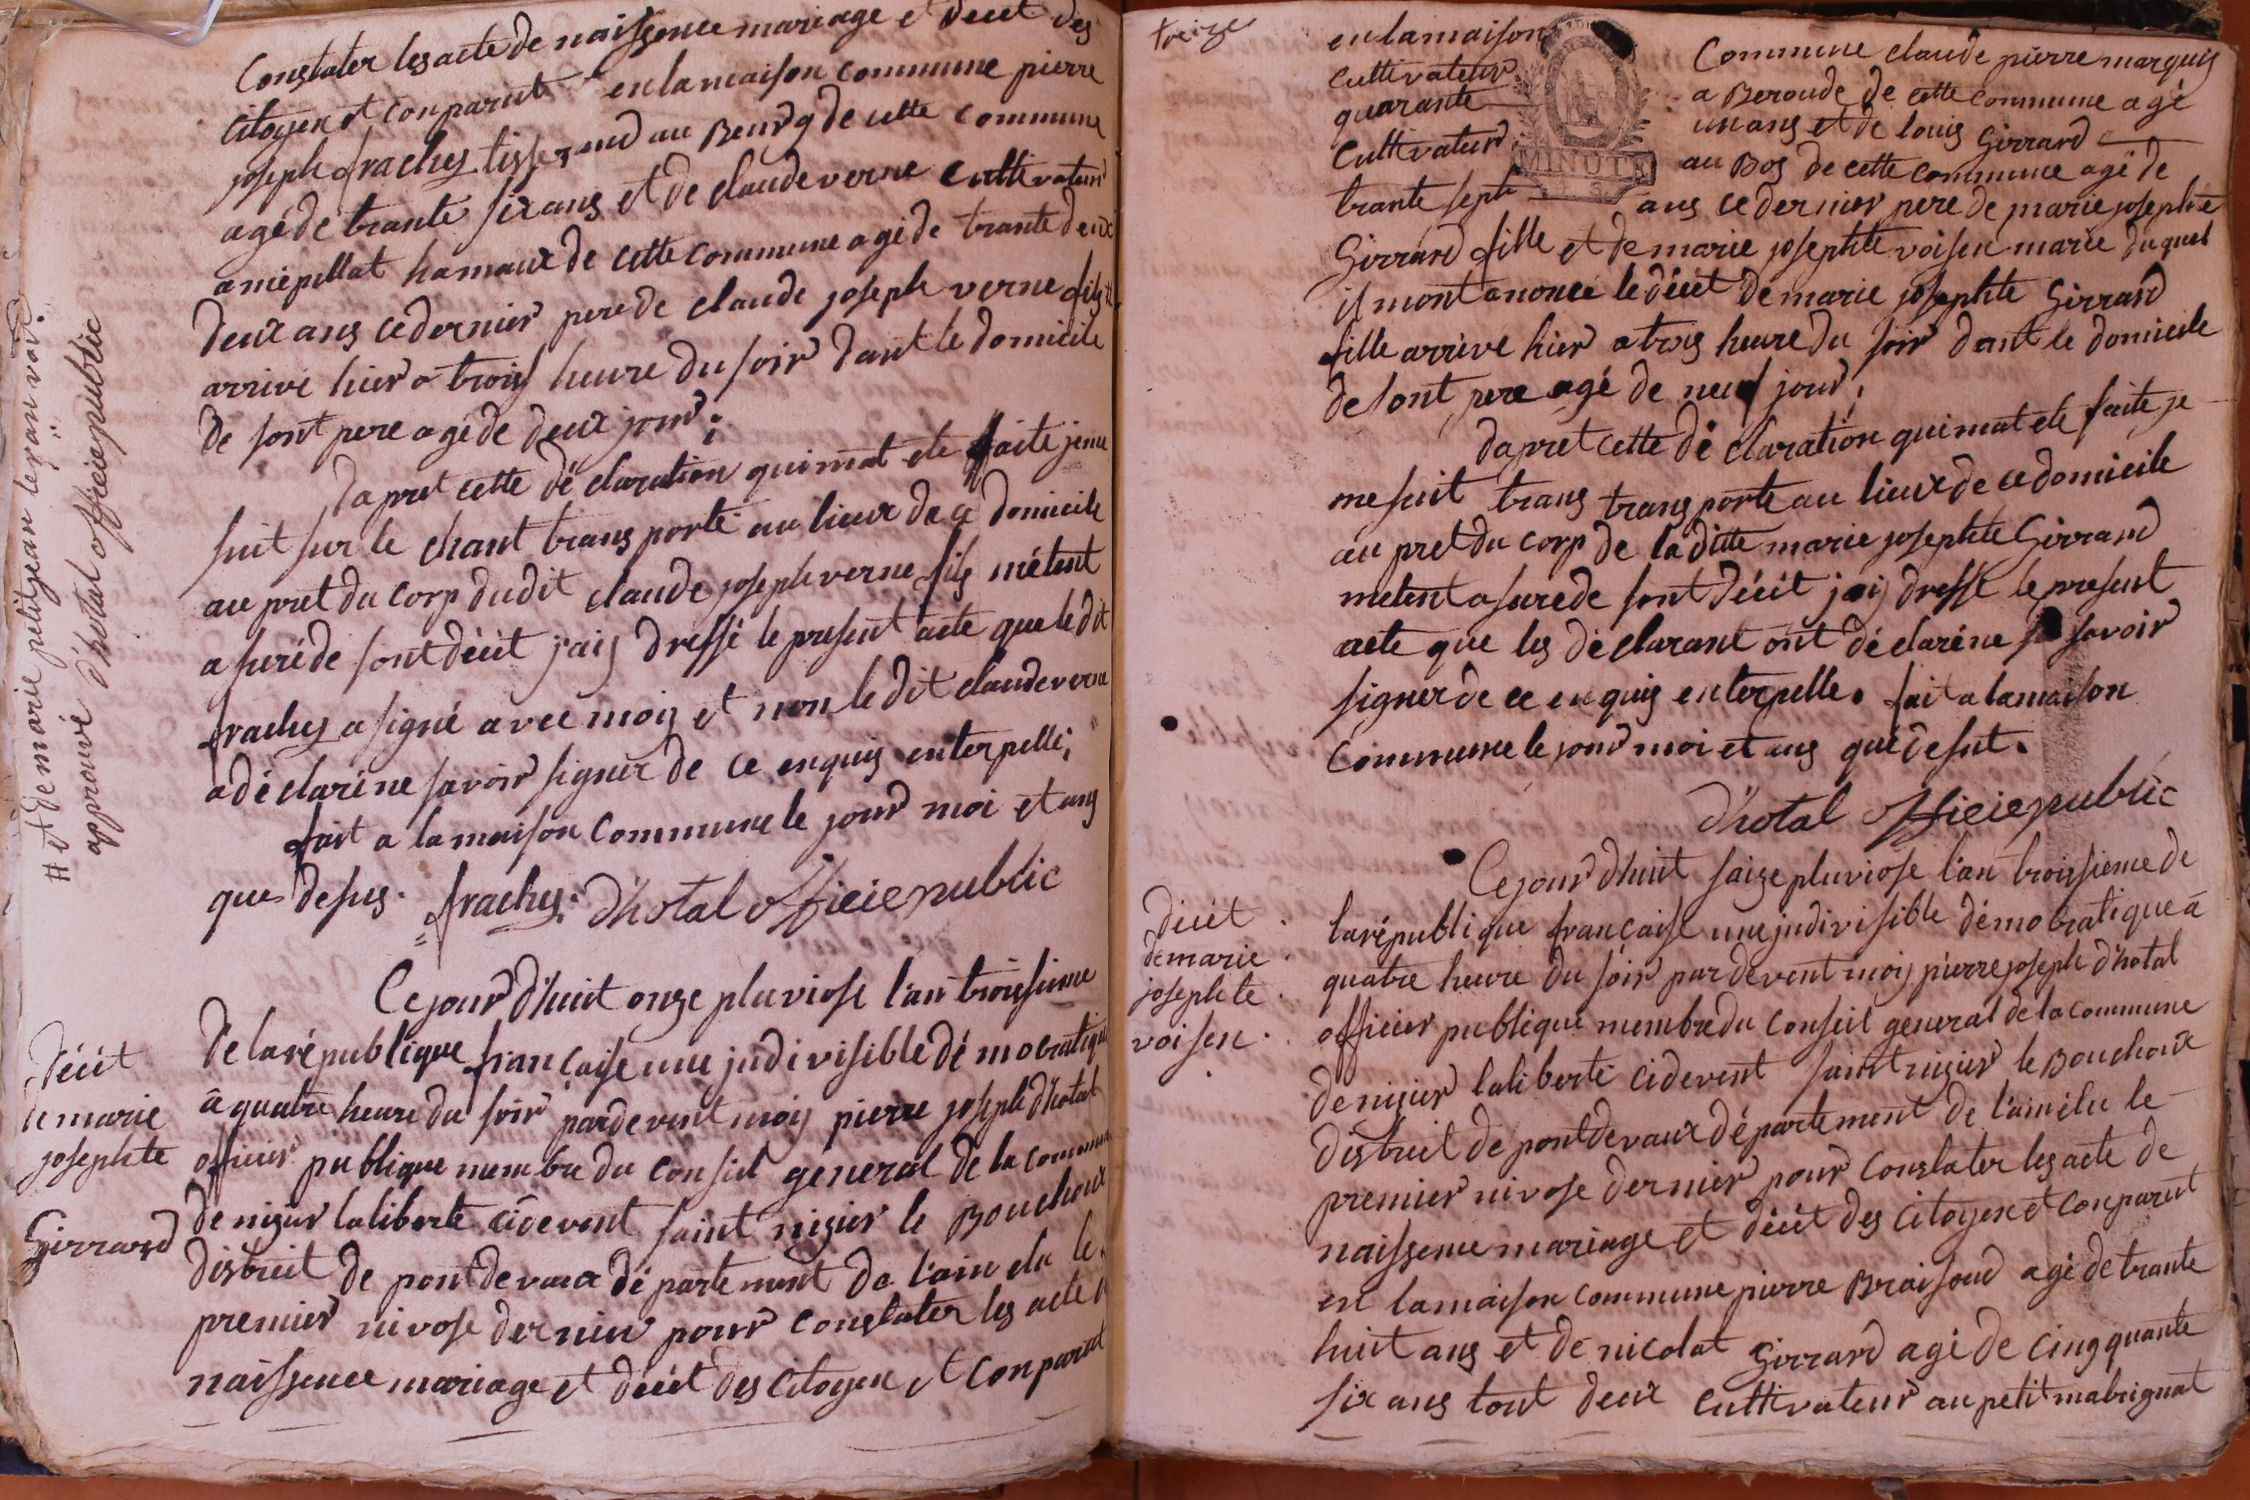 Constater les acte de naissence mariage et décet des
citoyen et conparut en la maison commune pierre
joseph frachus tisserend au Bourg de cette commune
agé de trante six ans et de claude verne cultivateur
a miépillat hamaux de cette commune agé de trante deux
deux ans ce dernier pere de claude joseph verne fils #
arrivé hier a trois heure du soir dant le domicile
de sont pere agé de deux jour;
dapret cette déclaration qui mat ete faite je me
suit sur le chant trans porté au lieux de ce domicile
au pret du corp du dit claude joseph verne fils métent
asuré de sont décit j'aij dressé le present acte que le dit
frachus a signé avec moij et non le dit claude verne
a déclaré ne savoir signer de ce enquis enterpellé;
fait a la maison commune le jour moi et ans
que desus. frachus: d'hotal officie public
# et de marie petitjean legran voi.
approuvé d'hotal officie public
Ce jour d'huit onze pluviose l'an troissieme
décit
de marie
josephte
Girrard
de la république française une jndivisible démocratique
à quatre heure du soir pardevent moij pierre joseph d'hotal
officier publique membre du conseil géneral de la commune
de nizier la liberté cidevent saint nizier le Bouchoux
district de pontdevaux département de l'ain élu le
premier nivose dernier pour constater les acte de
naissence mariage et décet des citoyen et conparut
treize
en la maison commune claude pierre marquis
cultivateur a Beroude de cette commune agé
quarante un ans et de louis Girrard
cultivateur au Bos de cette commune agé de
trante sept ans ce dernier pere de marie josephte
MINUTE
Girrard fille et de marie josephte voisen marié duquel
il mont anoncé le décet de marie josephte Girrard
fille arrivé hier a trois heure du soir dant le domicile
de sont pere agé de neuf jour;
dapret cette déclaration qui mat ete faite je
me suit trans trans porté au lieux de ce domicile
au pret du corp de la ditte marie josephte Girrard
metent asuré de sont décit jaij dressé le present
acte que les déclarant ont déclaré ne savoir
signer de ce enquis enterpellé. fait a la maison
commune le jour moi et ans que desut.
d'hotal officie public
Ce jour d'huit saize pluviose l'an troissieme de
décit
de marie
josephte
voisen.
la république française une jndivisible démocratique à
quatre heure du soir par devent moij pierre joseph d'hotal
officier publique membre du conseil general de la commune
de nizier la liberté cidevent saint nizier le Bouchoux
district de pontdevaux département de l'ain élu le
premier nivose dernier pour constater les acte de
naissence mariage et décét des citoyen et conparut
en la maison commune pierre Braisoud agé de trante
huit ans et de nicolat Girrard agé de cinq quante
six ans tout deux cultivateur au petit mabrignat